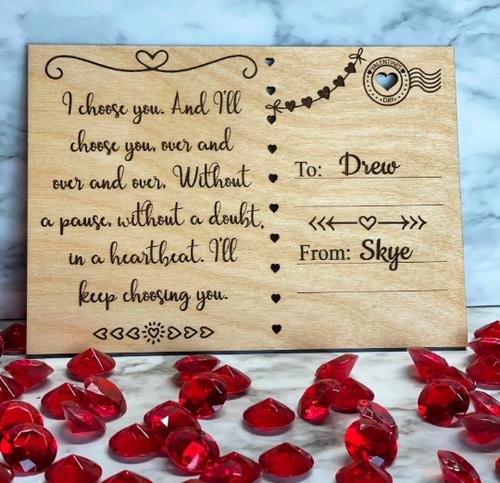 I choose you. And I'll
choose you, over and
over and over. Without
a pause, without a doubt,
in a heartbeat. I'll
keep choosing you.
VALENTINES
DAY
To: Drew
From: Skye